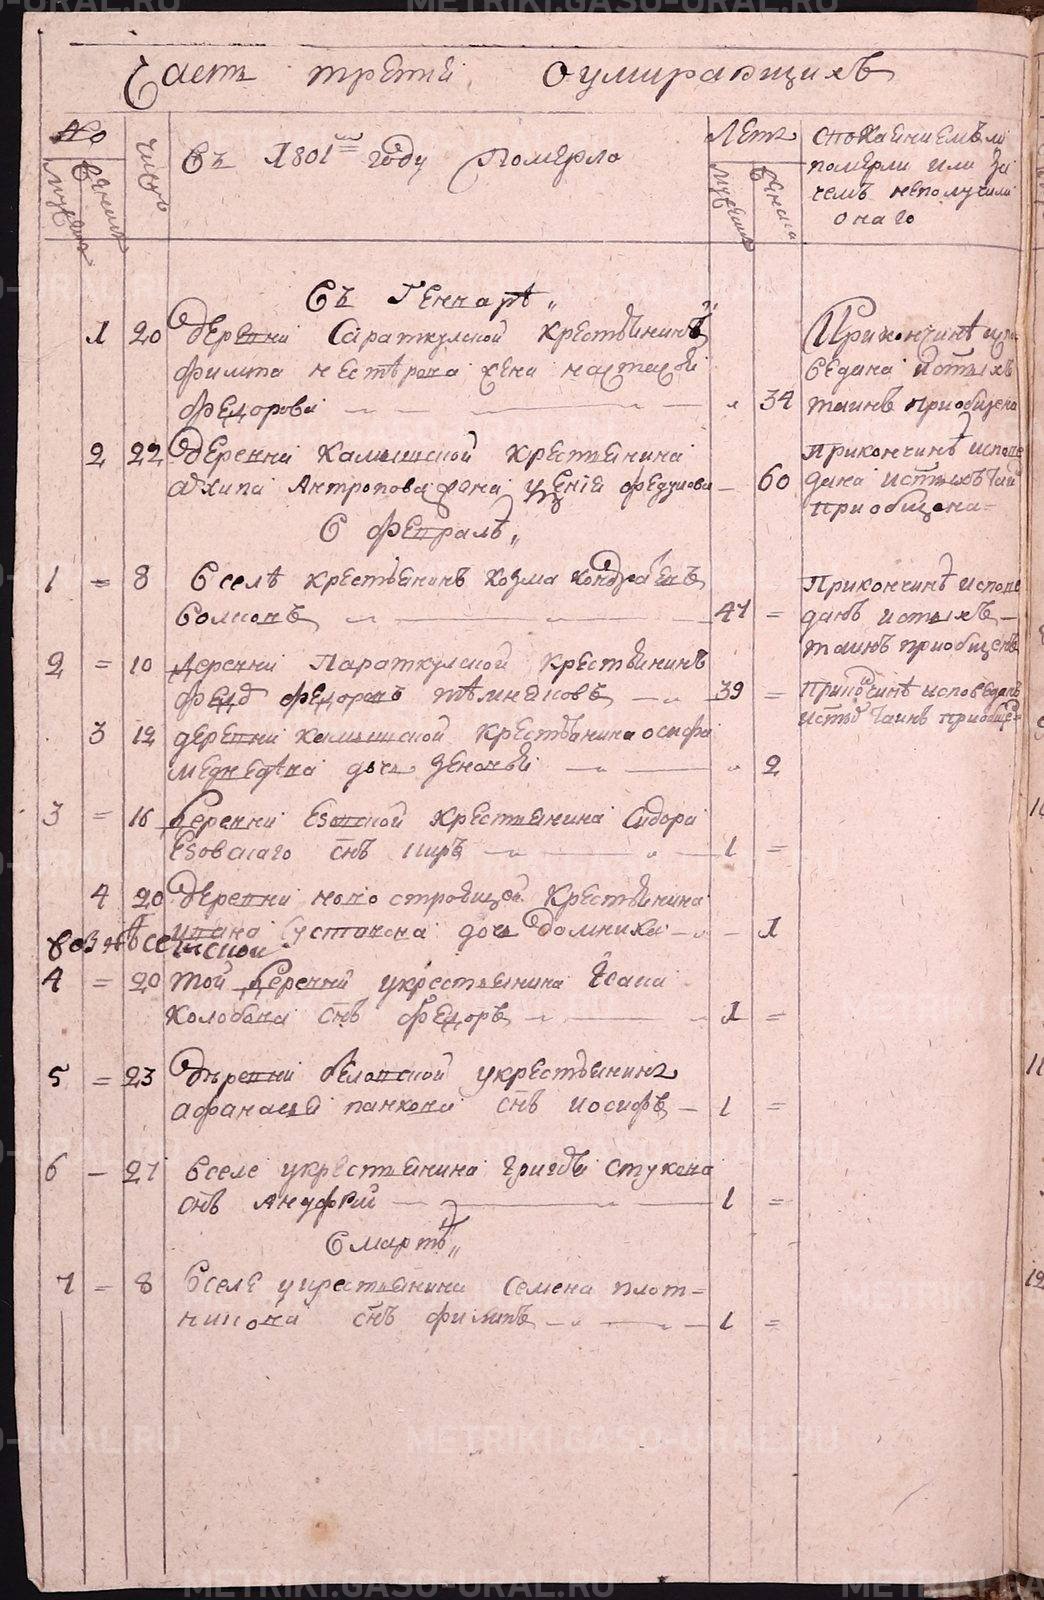 Часть третiя о умирающихъ
№
мужеска
женска
число
Въ 1801 году померло
Летъ
мужеска
женска
спокаениемъ ли
померли или за
чемъ неполучили
онаго
Въ Генварѣ
1 20 деревни Сараткулской крестьянина
жена настасья
федорова 34
Приконч
ведана истыхъ
таинъ приобщена
2 22 деревни Камышской крестьянина
архипа Антропова жена 60
Прикончинѣ испове
дана истыхъ таи
приобщена
В февралѣ
1 = 8 Вселѣ крестьянинъ козма
47 =
Прикончинѣ испове
данъ истыхъ
таинъ приобщенъ
2 = 10 деревни Сараткулской крестьянинъ
федоровъ 39 =
Прикончинѣ исповеданъ
исты таинъ приобще
3 12 деревни камышской крестьянина осифа
медведева дочь Зеновья 2
3 = 16 деревни Езовской крестьянина Сидора
Езовскаго снъ киръ 1 =
4 20 деревни крестьянина
ивана дочь домника 1
вознесенской
4 = 20 той деревни укрестьянина Исака
колобова снъ федоръ 1 =
5 = 23 деревни беловской укрестьянина
афанасья панкова снъ иосифъ 1 =
6 – 27 Вселе укрестьянина григорья стукова
снъ Ануфрий 1 =
В мартѣ
7 = 8 Вселе укрестьянина семена плот=
никова снъ филипъ 1 =
METRIKI.GASO-URAL.RU